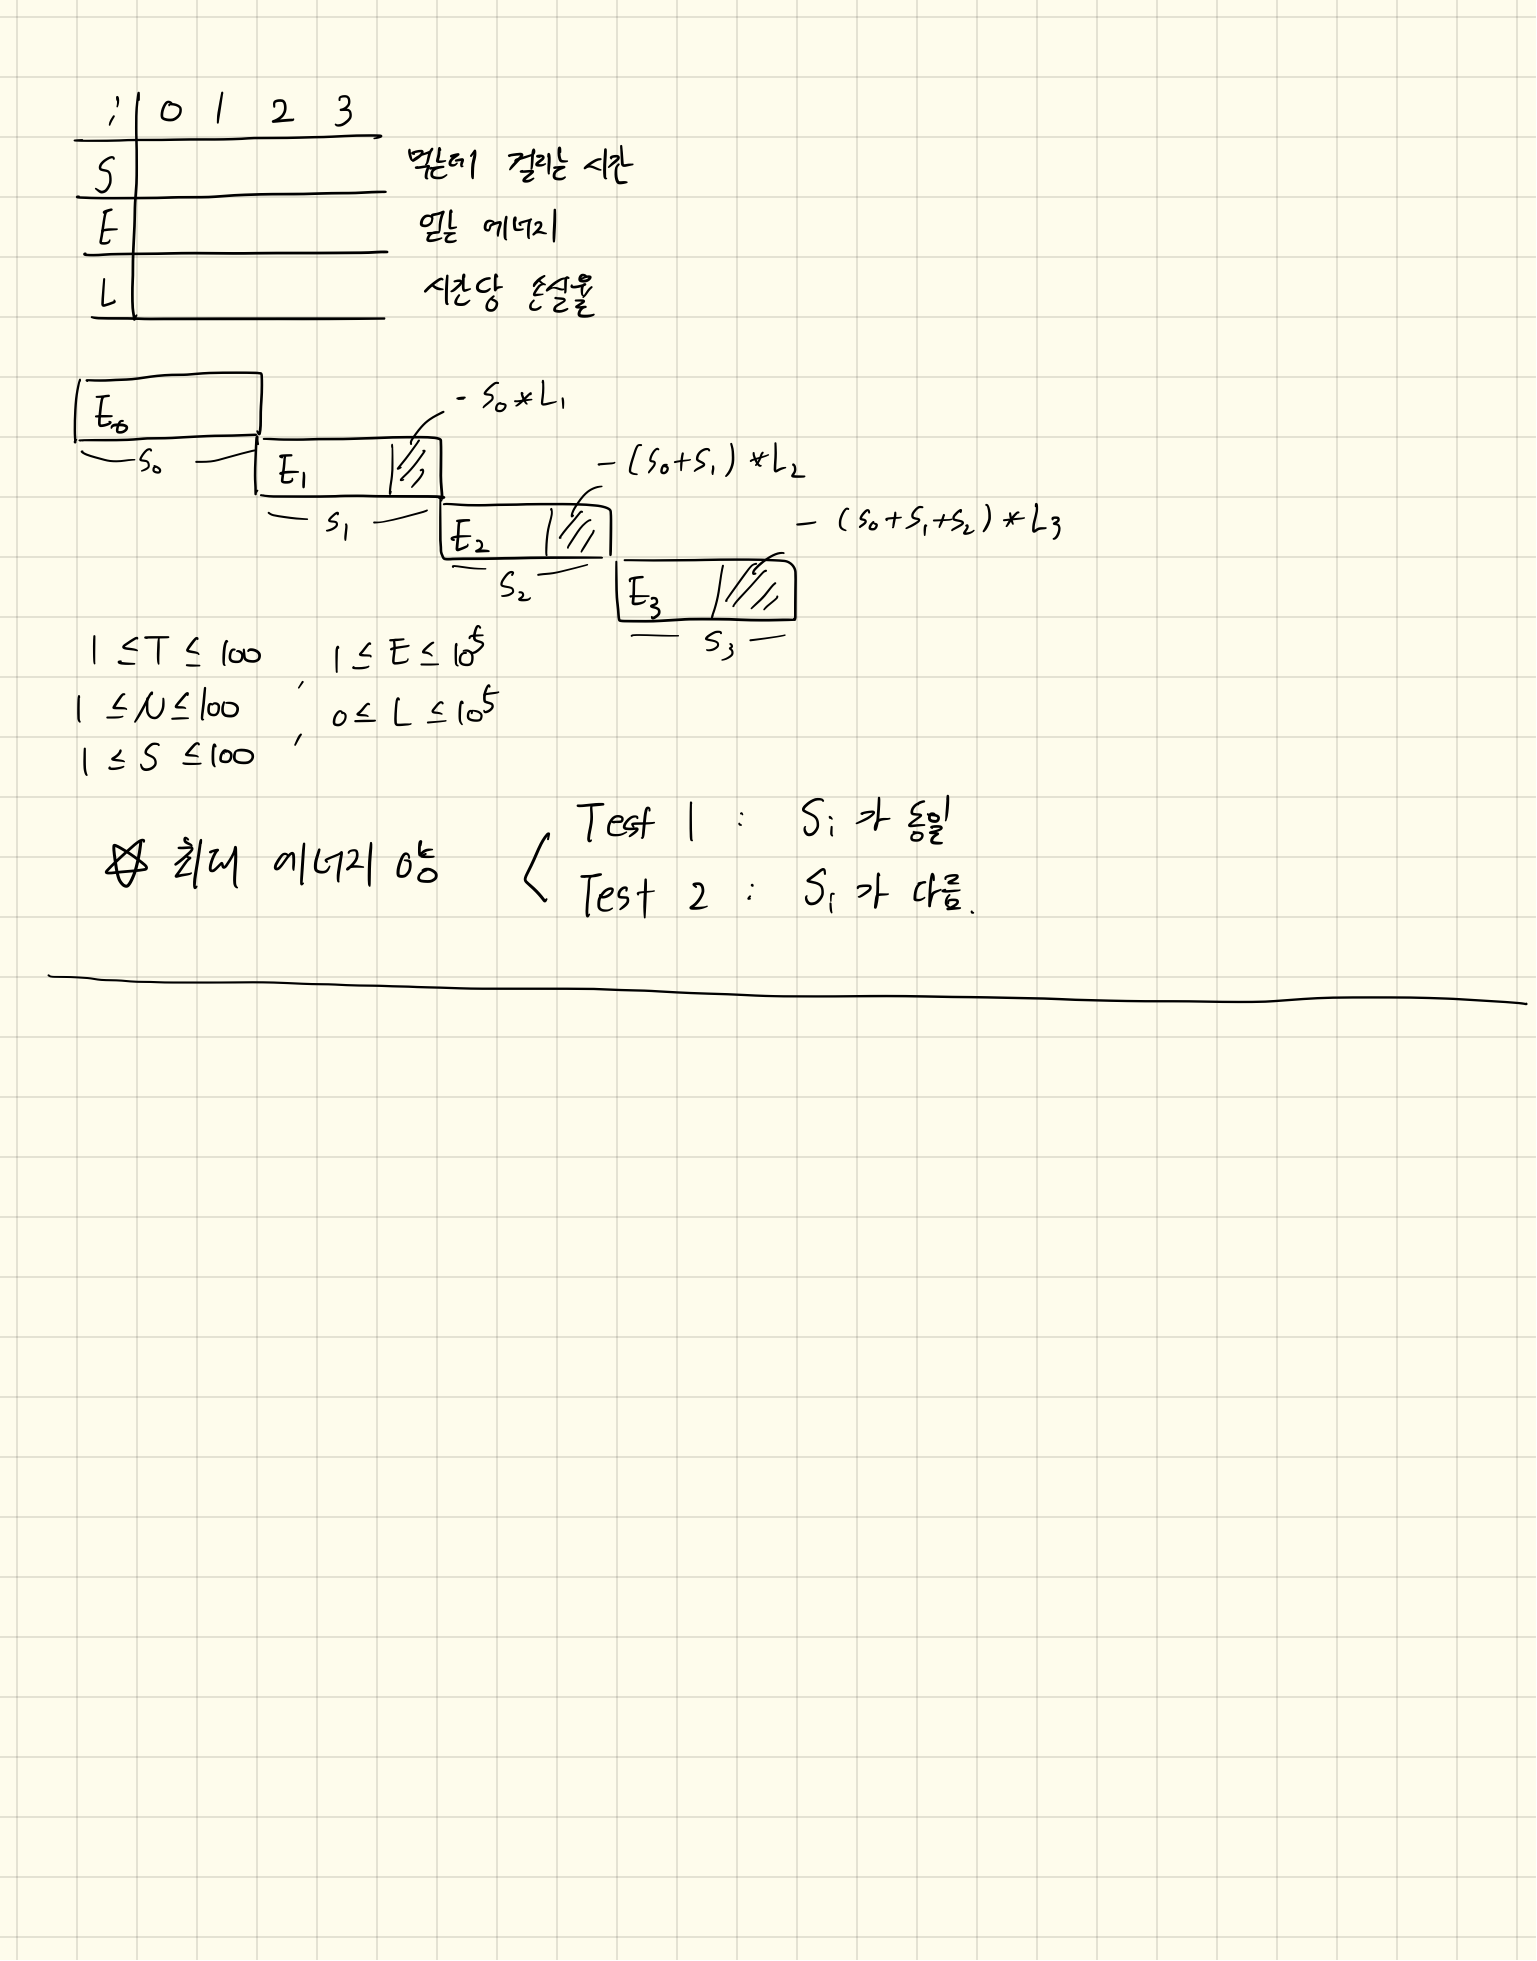 i 0 1 2 3
S 먹는데 걸리는 시간
E 얻는 에너지
L 시간당 손실율
E₀
- S₀*L₁
S₀
E₁
- (S₀+S₁)*L₂
S₁
E₂
- (S₀+S₁+S₂)*L₃
S₂
E₃
S₃
1 ≤ T ≤ 100 , 1 ≤ E ≤ 10⁵
1 ≤ N ≤ 100 , 0 ≤ L ≤ 10⁵
1 ≤ S ≤ 100
☆ 최대 에너지 양
Test 1 : Sᵢ 가 동일
Test 2 : Sᵢ 가 다름.